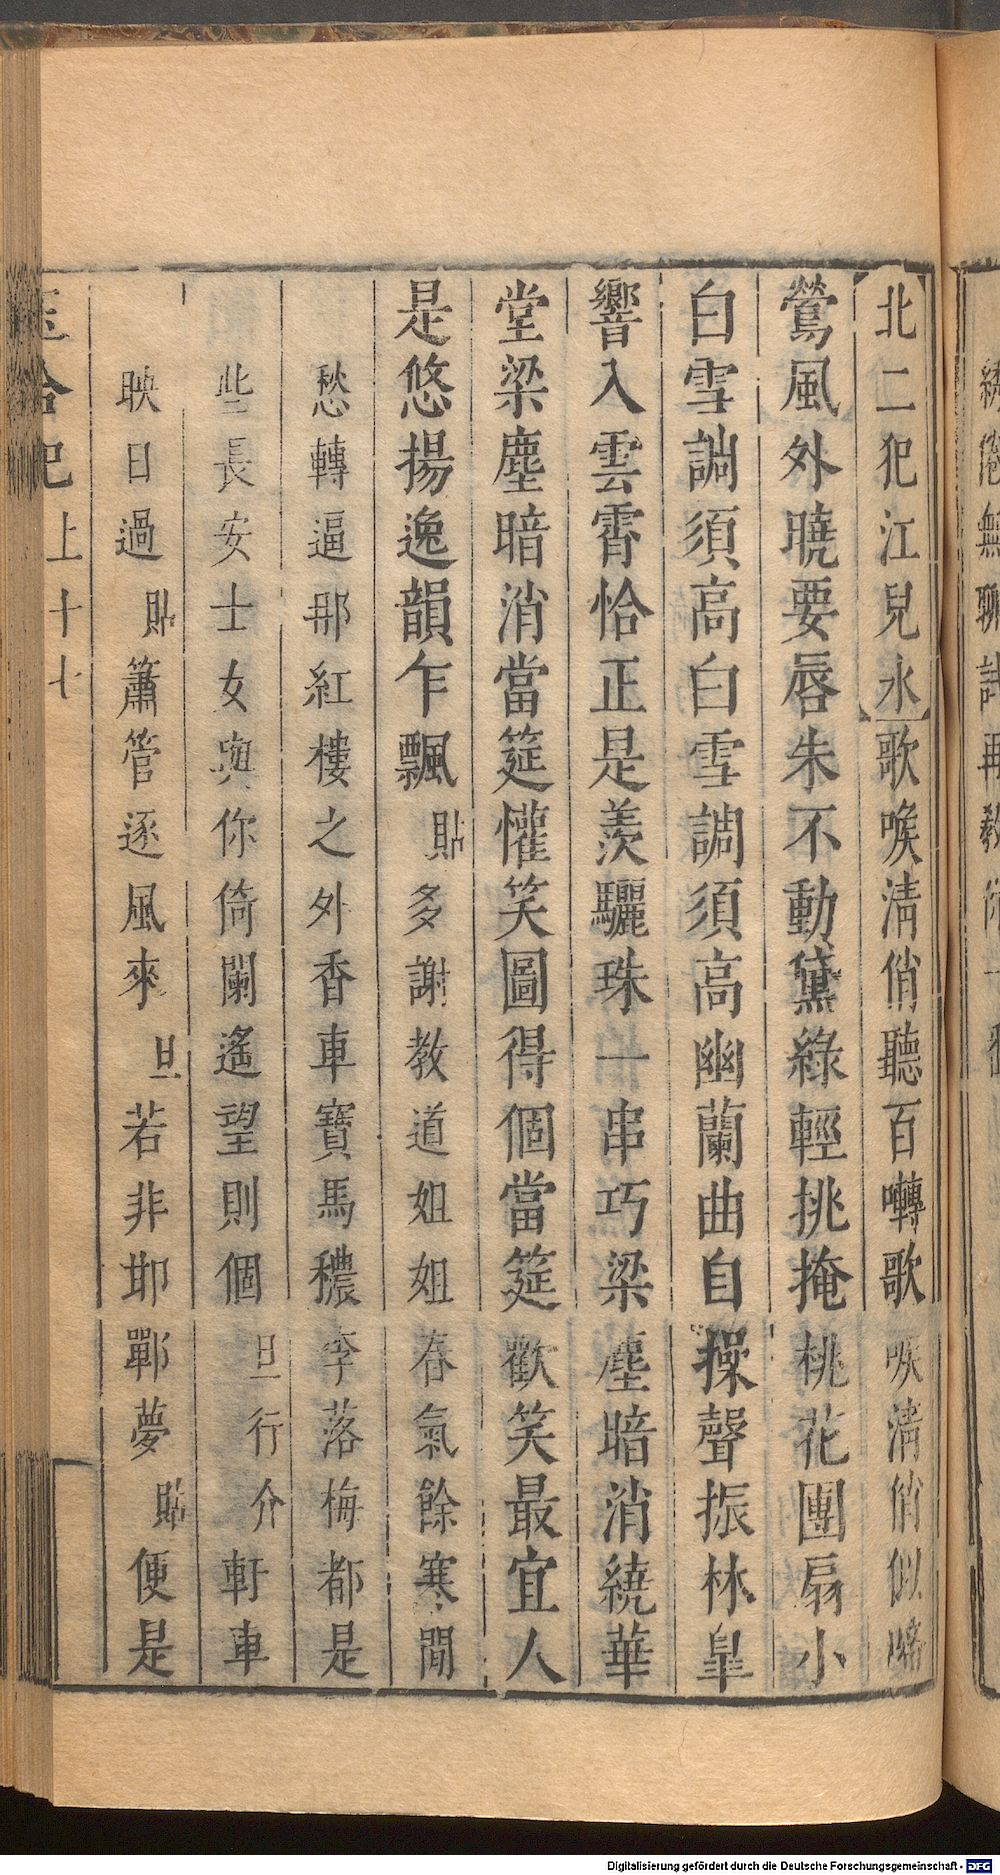 北二犯江兒水歌喉清俏聽百囀歌喉清俏似嬌
鶯風外曉要唇朱不動黛綠輕挑掩桃花團扇小
白雪調須高白雪調須高幽蘭曲自操聲振林臯
響入雲霄恰正是羨驪珠一串巧梁塵暗消繞華
堂梁塵暗消當筵懽笑圖得個當筵歡笑最宜人
是悠揚逸韻乍飄貼多謝教道姐姐春氣餘寒閒
愁轉逼那紅樓之外香車寶馬穠李落梅都是
些長安士女與你倚闌遙望則個旦行介軒車
映日過貼簫管逐風來旦若非邯鄲夢貼便是
玉合記上十七
Digitalisierung gefördert durch die Deutsche Forschungsgemeinschaft - DFG